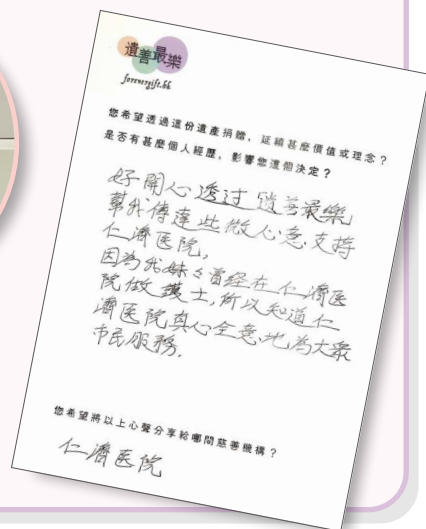 遺善最樂
forevergift.hk
您希望透過這份遺產捐贈，延續甚麼價值或理念？
是否有甚麼個人經歷，影響您這個決定？
好開心透过遺善最樂
幫我傳達些微心意支持
仁濟医院，
因為我妹々曾经在仁濟医
院做護士，所以知道仁
濟医院真心全意地為大衆
市民服務.
您希望將以上心聲分享給哪間慈善機構？
仁濟医院